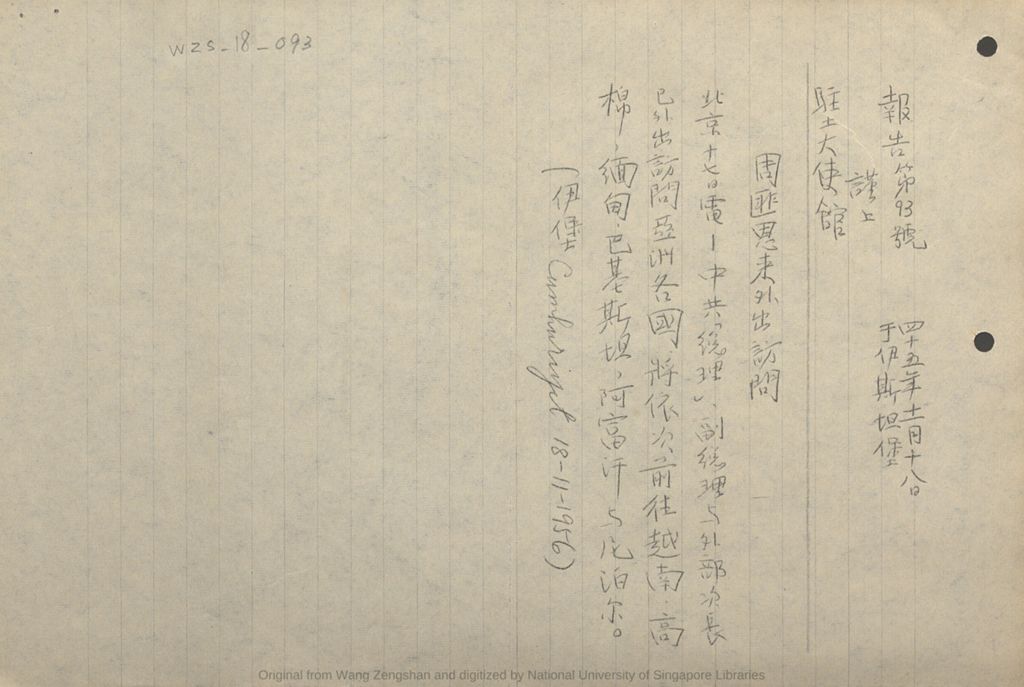 WZS-18-093
報告第93號
四十五年十一月十八日
于伊斯坦堡
謹上
駐土大使館
周匪恩来外出訪問
北京十七日電—中共「總理」、副總理与外部次長
已外出訪問亞洲各國,將依次前往越南、高
棉,緬甸、巴基斯坦,阿富汗与尼泊尔。
(伊堡 Cumhuriyet 18-11-1956)
Original from Wang Zengshan and digitized by National University of Singapore Libraries